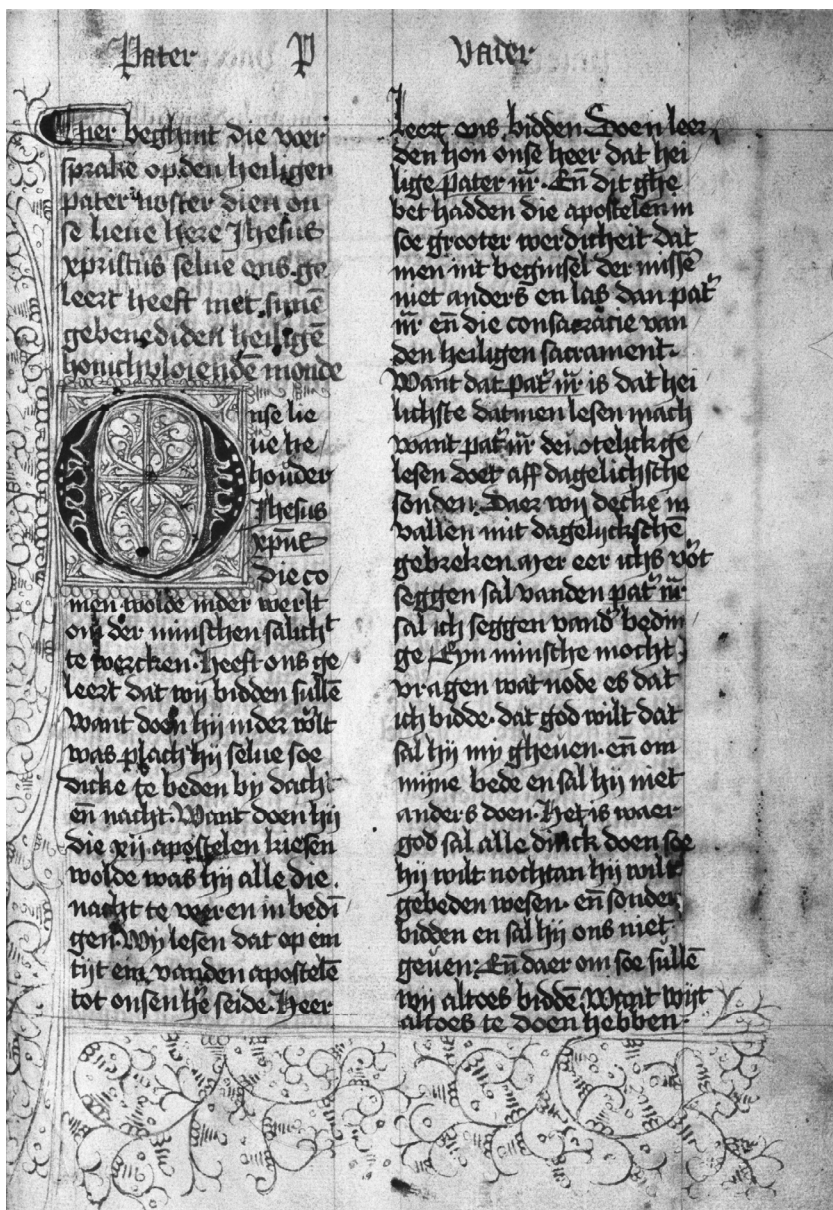 Pater P Vader
Hier beghint die voer
sprake op den heiligen
pater noster dien on
se lieue here Jhesus
xpristus selue ons ge
leert heeft met sinē
gebenediden heiligē
honichvloiendē monde
Onse lie
ue be
houder
Jhesus
xpūs
die co
men wolde inder werlt
om der minschen salicht
te wercken. Heeft ons ge
leert dat wij bidden sullē
Want doen hij inder w̄lt
was plach hij selue soe
dicke te beden by dach
en̄ nacht. Want doen hij
die xij apostelen kiesen
wolde was hij alle die
nacht te veeren in bedī
gen. Wy lesen dat op ein
tijt ein vanden apostelē
tot onsen hē seide. Heer
leert ons bidden Doen leer
den hon onse heer dat hei
lige pater nr̄. En̄ dit ghe
bet hadden die apostelen in
soe grooter werdicheit dat
men int beginsel der missē
niet anders en las dan pat᷑
nr̄ en̄ die consacracie van
den heiligen sacrament.
Want dat pat᷑ nr̄ is dat hei
lichste datmen lesen mach
want pat᷑ nr̄ deuotelick ge
lesen doet aff dagelichsche
sonden. Daer wij decke in
vallen mit dagelijckschē
gebreken. mer eer ichs vort
seggen sal vanden pat᷑ nr̄
sal ich seggen vand᷑ bedin
ge Eyn minsche mocht
vragen wat node es dat
ich bidde. dat god wilt dat
sal hij my gheuen. en̄ om
mijne bede en sal hij niet
anders doen. Het is waer
god sal alle dinck doen soe
hij wilt nochtan hij wilt
gebeden wesen. en̄ sonder
bidden en sal hij ons niet
geuen. En̄ daer om soe sullē
wij altoes biddē. Want wijt
altoes te doen hebben.